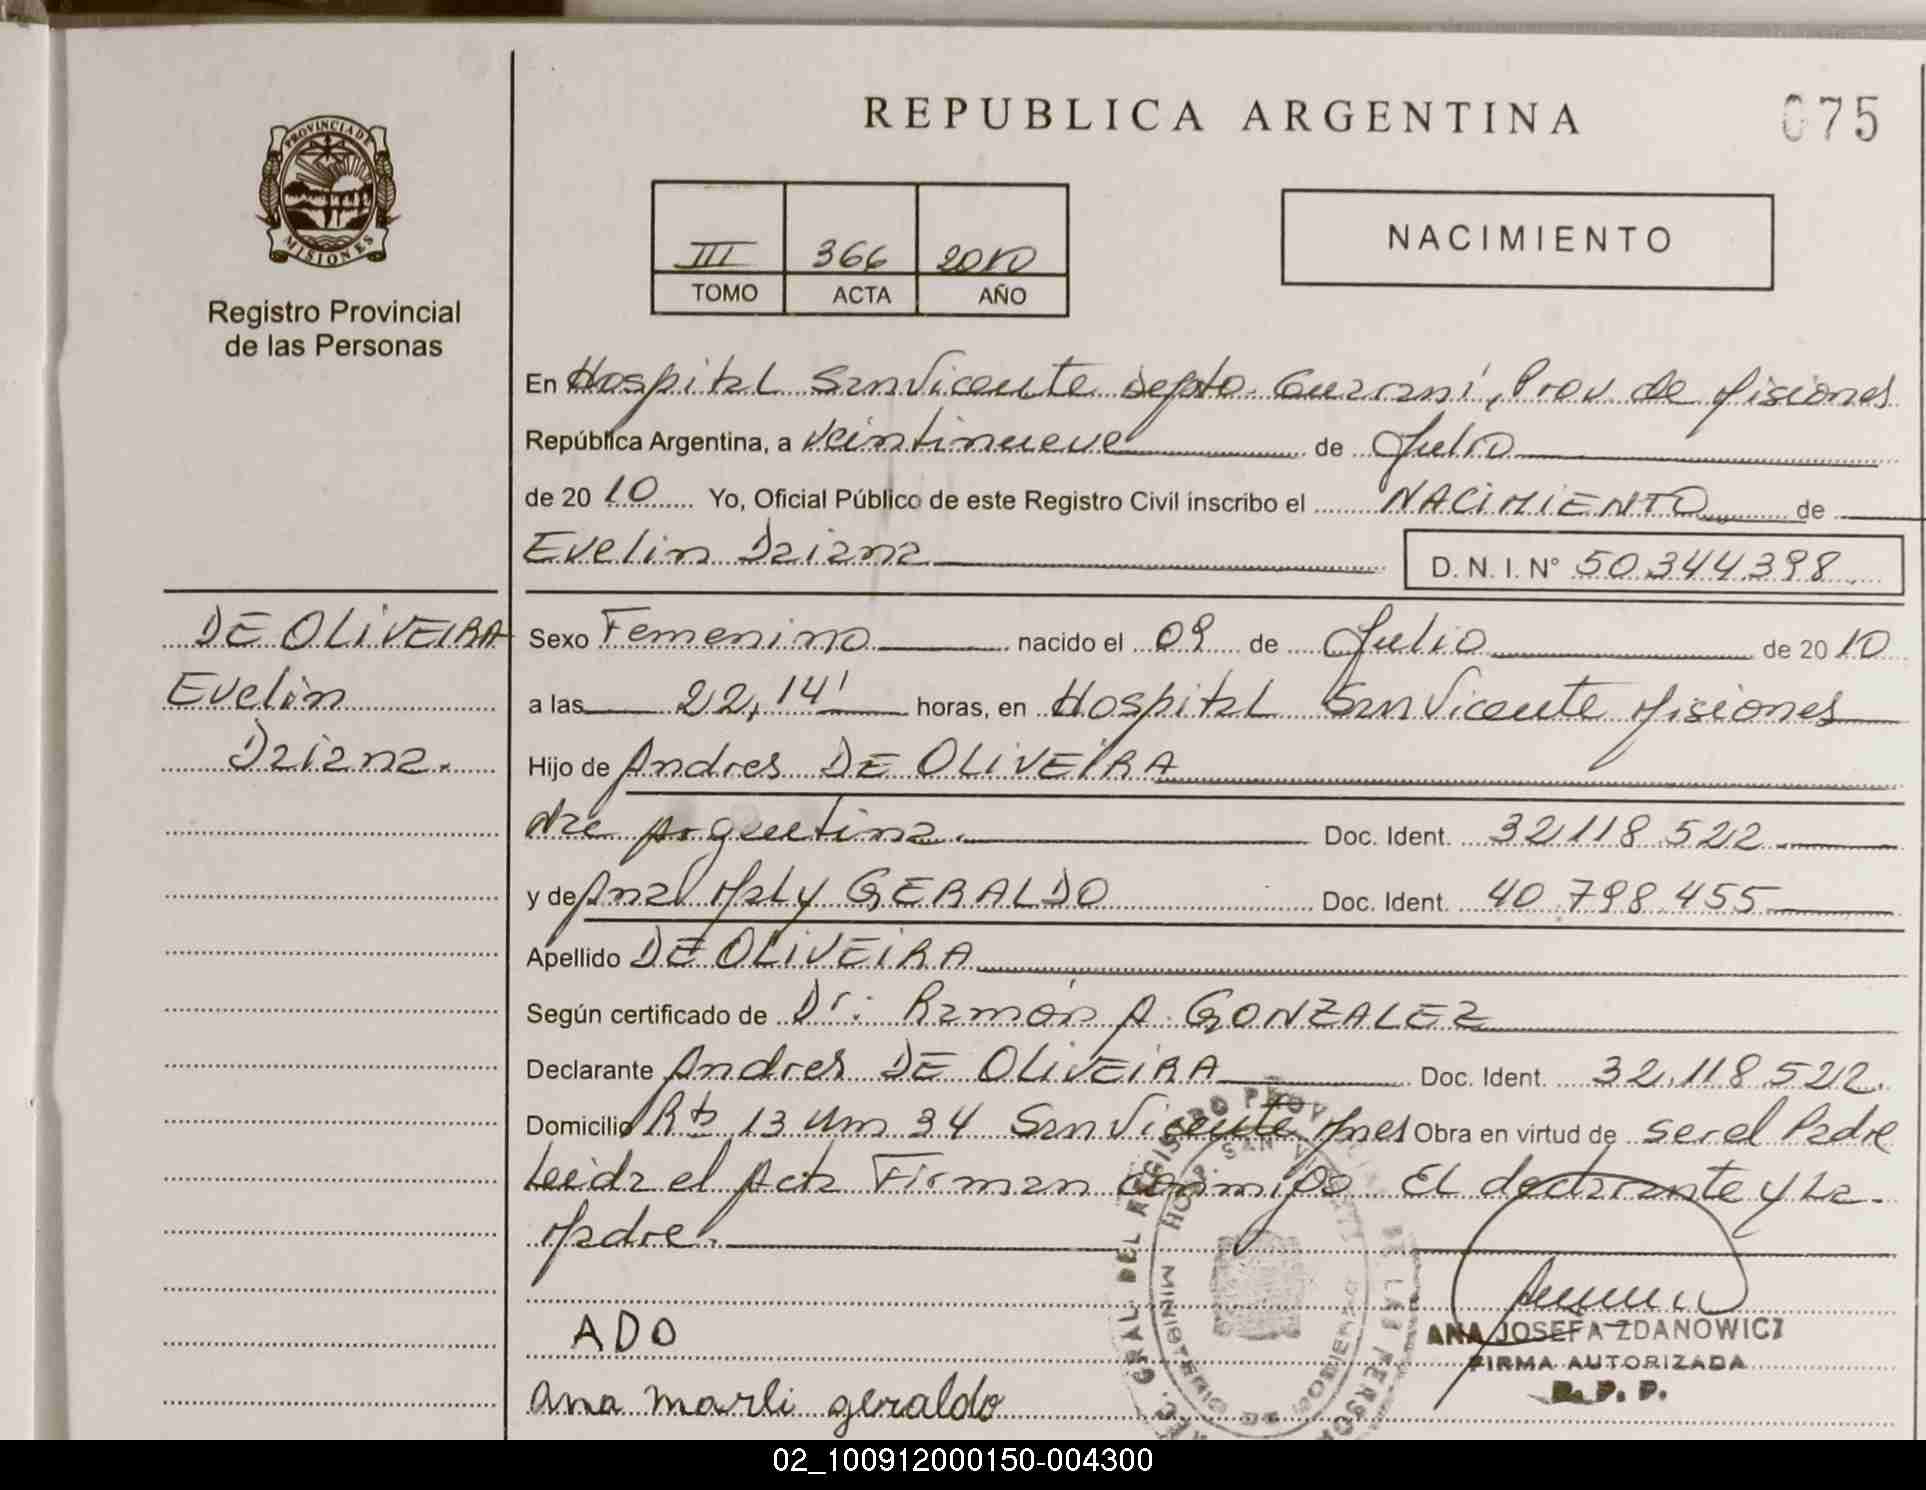 REPUBLICA ARGENTINA
075
PROVINCIA DE
MISIONES
Registro Provincial
de las Personas
III 366 2010
TOMO ACTA AÑO
NACIMIENTO
En Hospital San Vicente Depto. Guaraní, Prov. de Misiones
República Argentina, a veintinueve de Julio
de 2010 Yo, Oficial Público de este Registro Civil inscribo el NACIMIENTO de
Evelin Daiana
D. N. I. N° 50.344.398
DE OLIVEIRA
Evelin
Daiana.
Sexo Femenino nacido el 09 de Julio de 2010
a las 22,14' horas, en Hospital San Vicente Misiones
Hijo de Andres DE OLIVEIRA
Argentina. Doc. Ident. 32.118.522
y de Ana Maly GERALDO Doc. Ident. 40.798.455
Apellido DE OLIVEIRA
Según certificado de Dr: Ramón A. GONZALEZ
Declarante Andres DE OLIVEIRA Doc. Ident. 32.118.522.
Domicilio Rta 13 Km 34 San Vicente Mnes Obra en virtud de ser el Padre
Leida el Acta Firman conmigo El declarante y La
Madre.
ADO
ana marli geraldo
ANA JOSEFA ZDANOWICZ
FIRMA AUTORIZADA
R. P. P.
GRAL. DEL REGISTRO PROVINCIAL DE LAS PERSO
HOSP. SAN VICENTE
MINISTERIO DE GOBIERNO
02_100912000150-004300